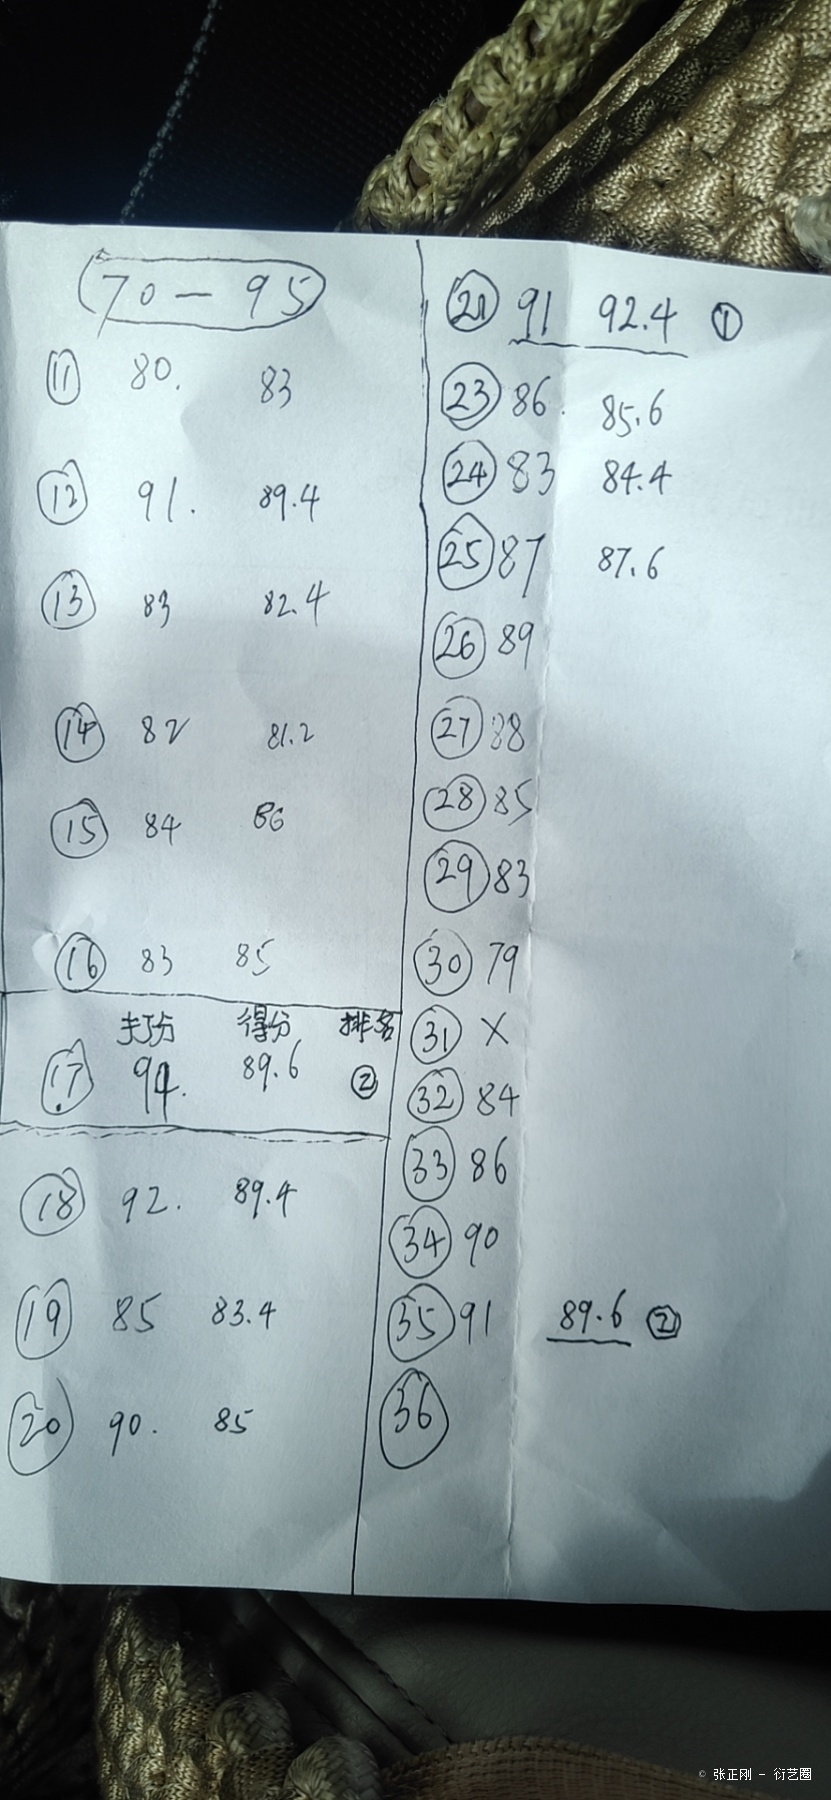 70 — 95
⑪ 80. 83
⑫ 91. 89.4
⑬ 83 82.4
⑭ 82 81.2
⑮ 84 86
⑯ 83 85
打分 得分 排名
⑰ 94. 89.6 ②
⑱ 92. 89.4
⑲ 85 83.4
⑳ 90. 85
㉑ 91 92.4 ①
㉓ 86. 85.6
㉔ 83 84.4
㉕ 87 87.6
㉖ 89
㉗ 88
㉘ 85
㉙ 83
㉚ 79
㉛ ×
㉜ 84
㉝ 86
㉞ 90
㉟ 91 89.6 ②
㊱
© 张正刚 - 衍艺圈